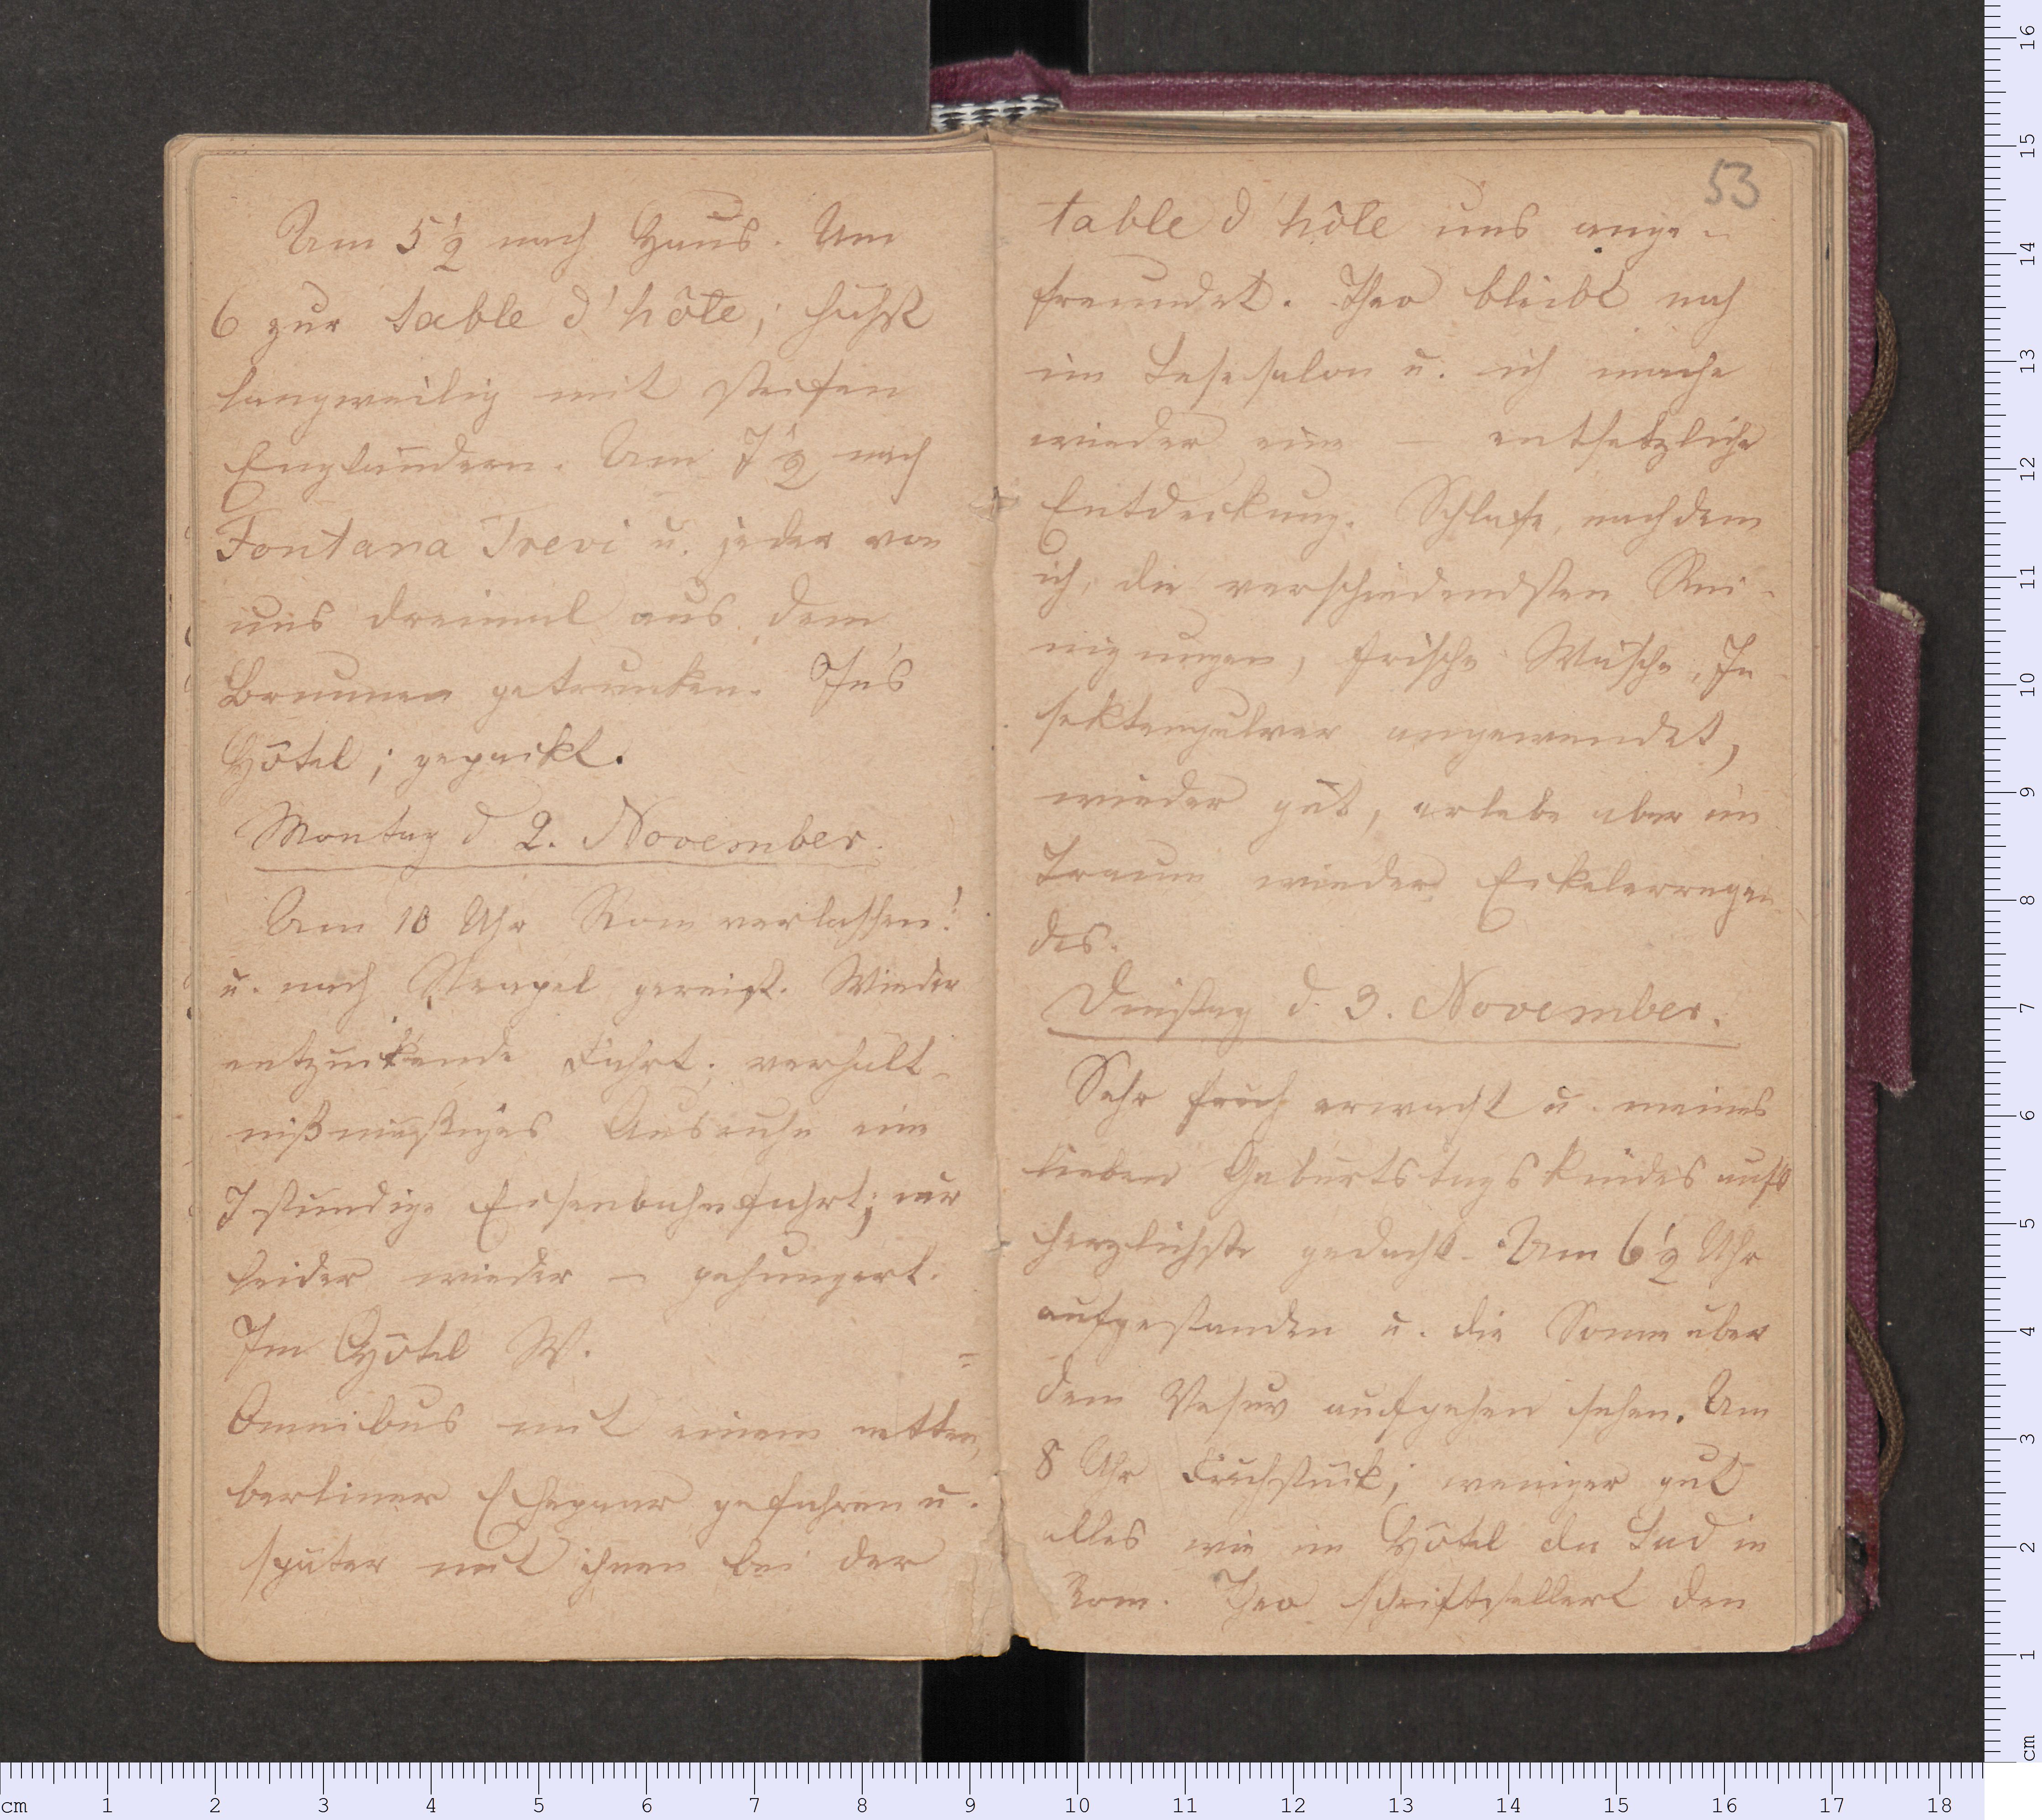 Um 5½ nach Haus. Um
6 zur table d'hôte; höchst
langweilig mit steifen
Engländern. Um 7½ nach
Fontana Trevi u. jeder von
uns dreimal aus dem
Brunnen getrunken. In's
Hôtel; gepackt.
Montag d. 2. November.
Um 10 Uhr Rom verlassen!
u. nach Neapel gereist. Wieder
entzückende Fahrt; verhält-
nißmäßiges Ausruhn eine
7 stündige Eisenbahnfahrt; nur
leider wieder – gehungert.
Im Hôtel W. -
Omnibus mit einem netten,
berliner Ehepaar gefahren u.
später mit ihnen bei der
53
table d'hôte uns ange-
freundet. Theo bleibt noch
im Lesesalon u. ich mache
wieder eine – entsetzliche
Entdeckung. Schlafe, nachdem
ich, die verschiedendsten Rei-
nigungen, frische Wäsche, In-
sektenpulver angewendet,
wieder gut, erlebe aber im
Traum wieder Eckelerregen
des.
Dinstag d. 3. November.
Sehr früh erwacht u. meines
lieben Geburtstagskindes aufs
herzlichste gedacht. Um 6½ Uhr
aufgestanden u. die Sonne über
dem Vesuv aufgehen sehen. Um
8 Uhr Frühstück; weniger gut
alles wie im Hôtel du Sud in
Rom. Theo schriftstellert den